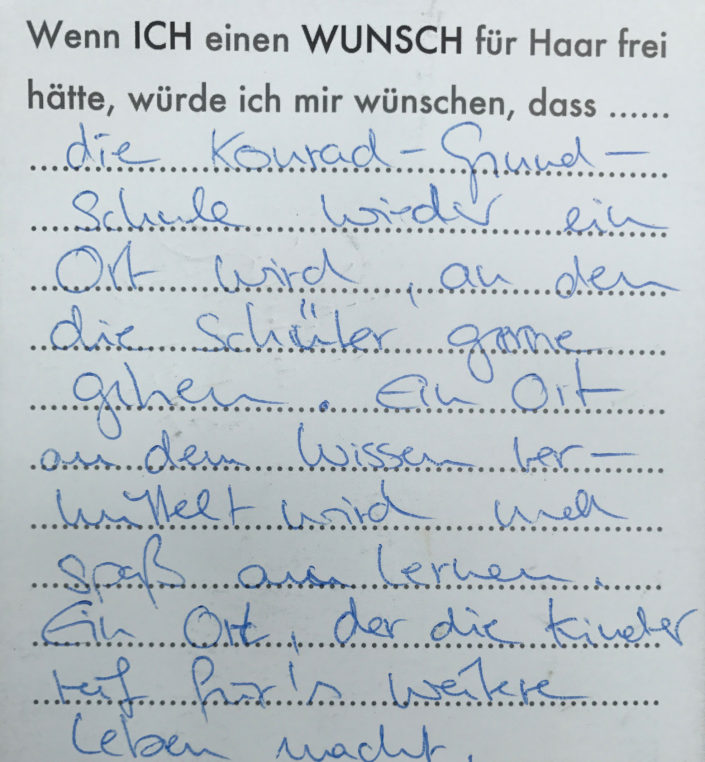 Wenn ICH einen WUNSCH für Haar frei
hätte, würde ich mir wünschen, dass ......
die Konrad-Grund-
Schule wieder ein
Ort wird, an dem
die Schüler gerne
gehen. Ein Ort
an dem Wissen ver-
mittelt wird und
spaß am lernen.
Ein Ort, der die kinder
reif für's weitere
Leben macht.